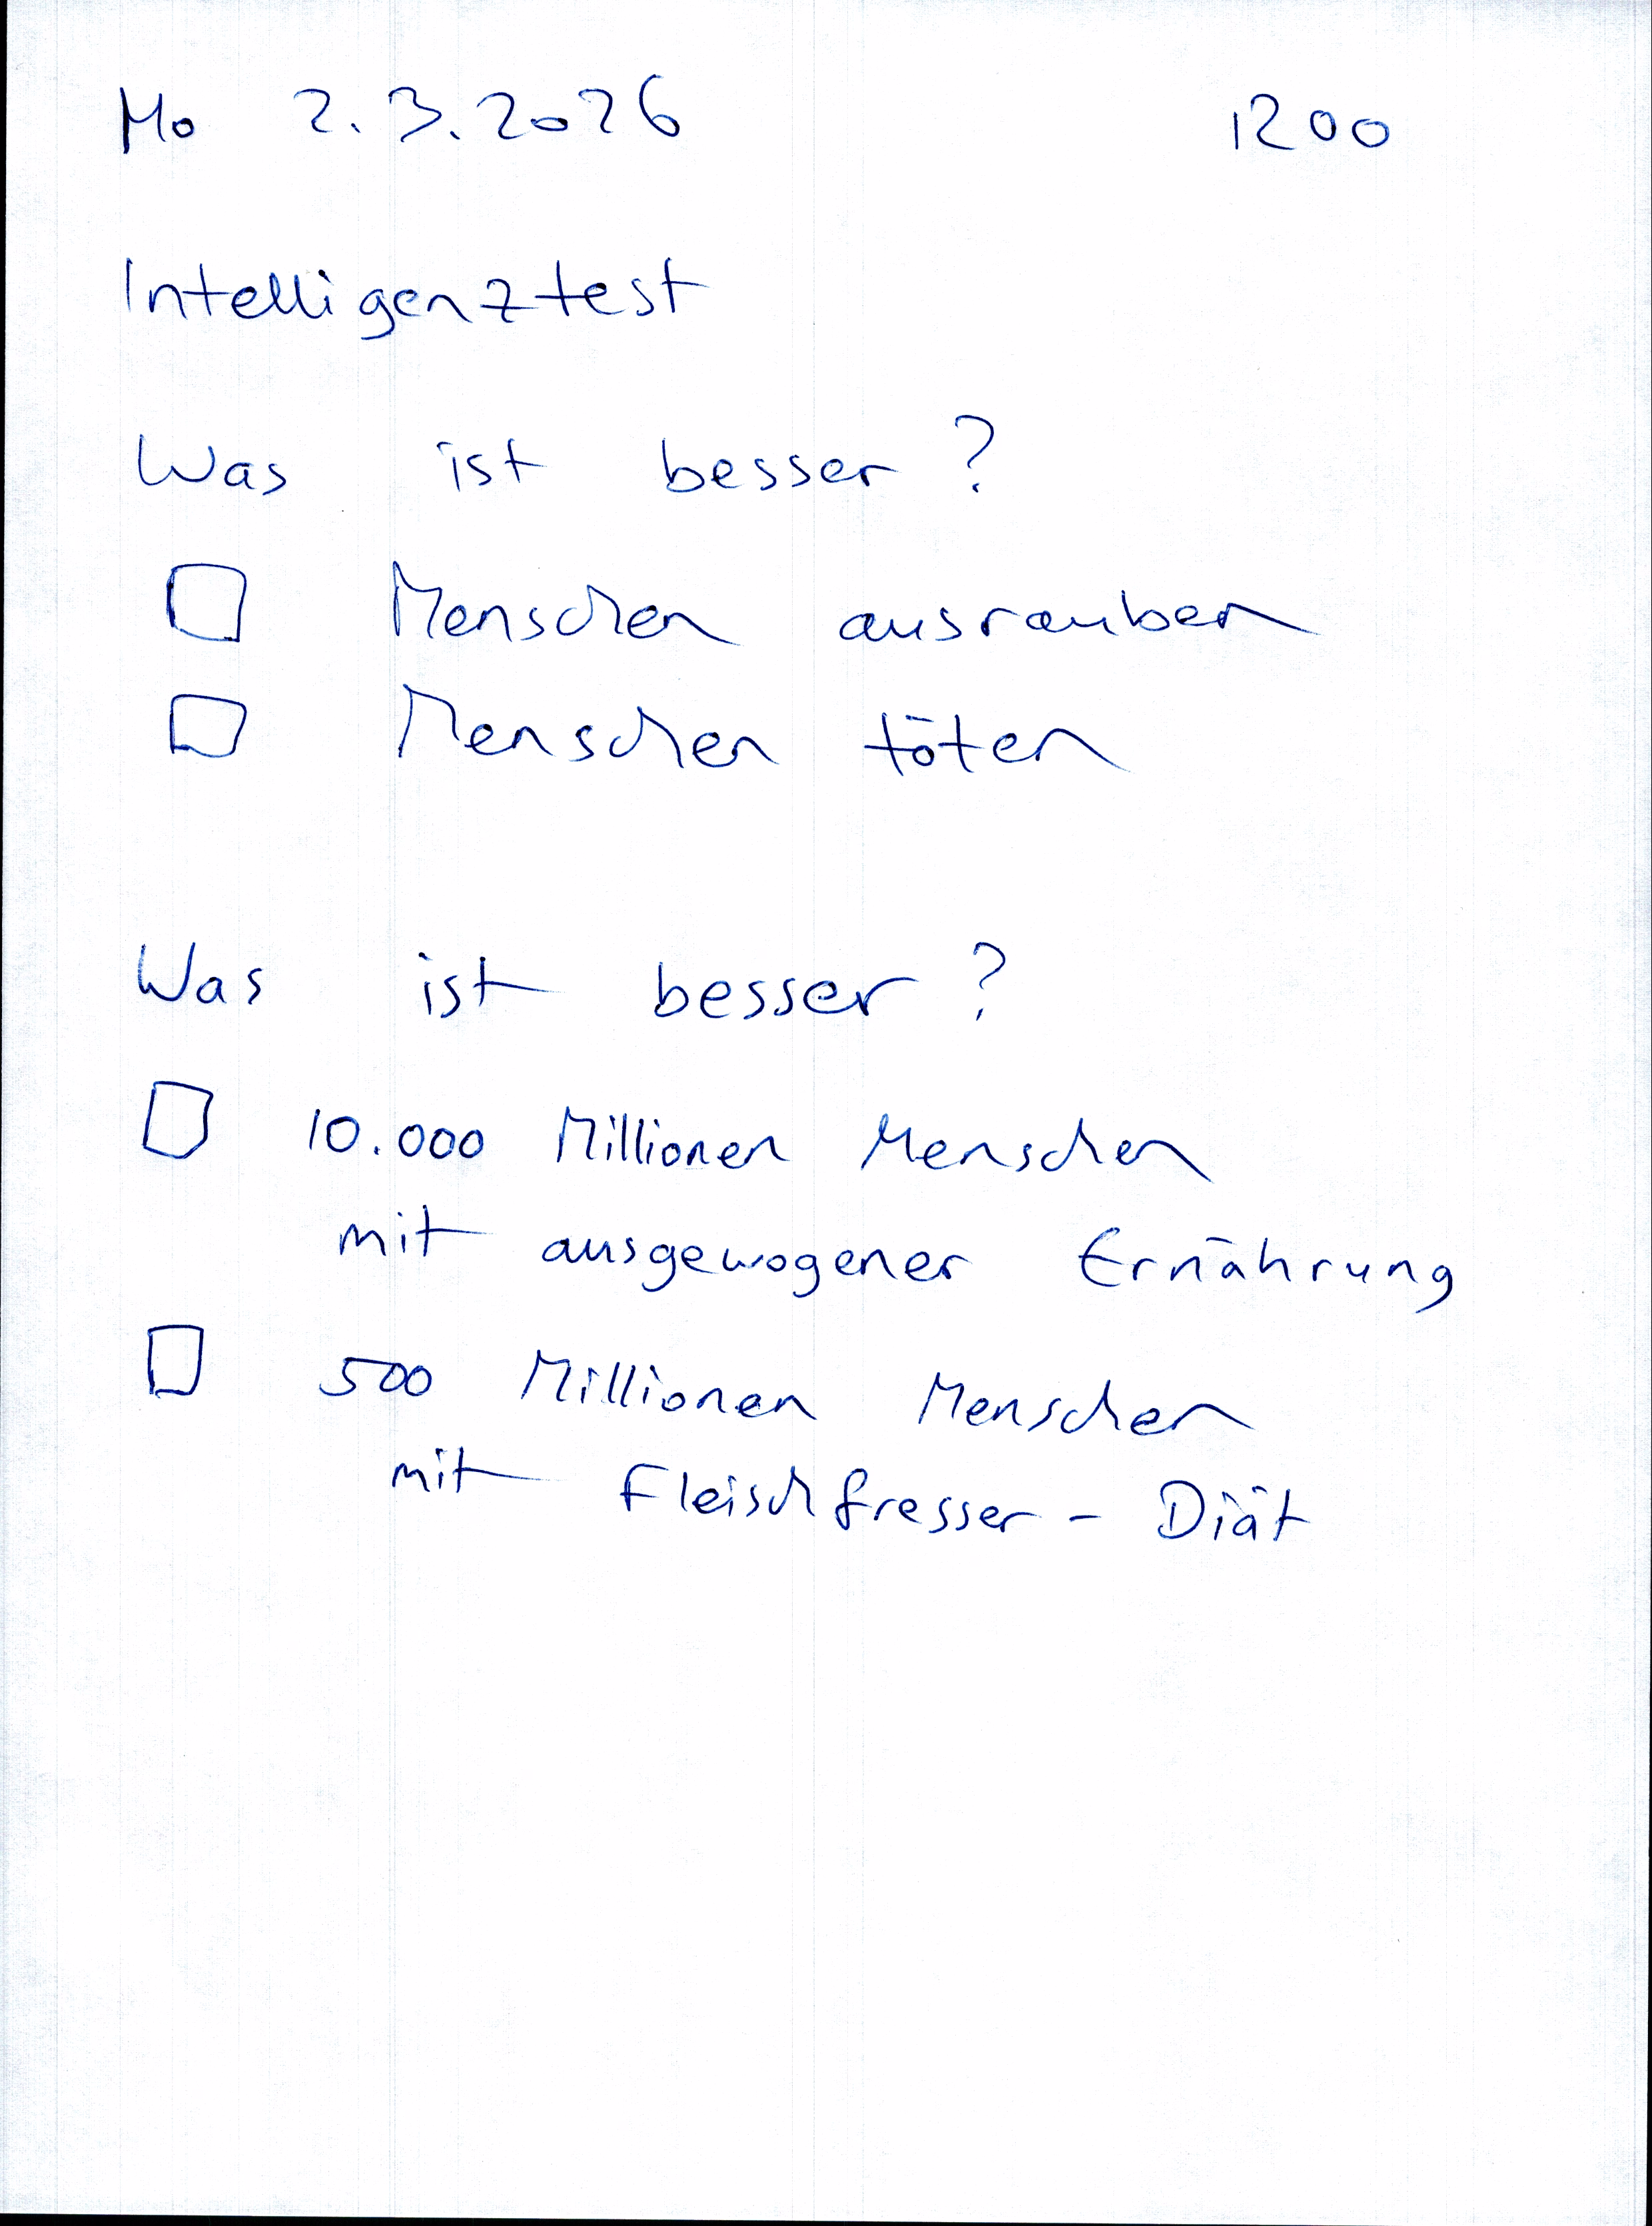 Mo 2.3.2026 1200
Intelligenztest
Was ist besser?
□ Menschen ausrauben
□ Menschen töten
Was ist besser?
□ 10.000 Millionen Menschen
mit ausgewogener Ernährung
□ 500 Millionen Menschen
mit Fleischfresser-Diät